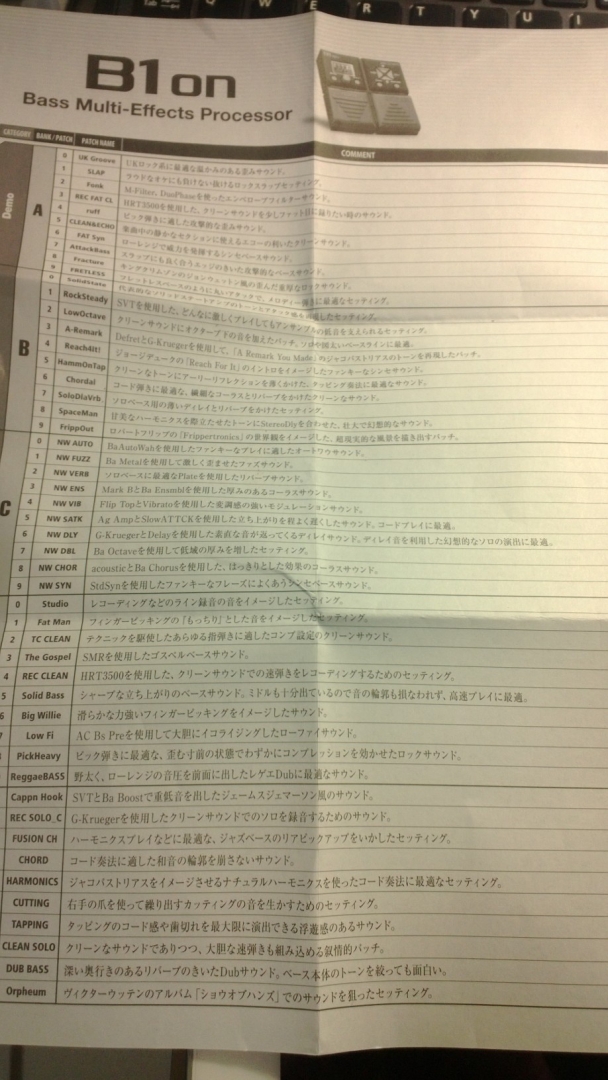 Q W E R T Y U I
B1on
Bass Multi-Effects Processor
CATEGORY BANK / PATCH PATCH NAME COMMENT
Demo
A
0 UK Groove UKロック系に最適な温かみのある歪みサウンド。
1 SLAP ラウドなオケにも負けない抜けるロックスラップセッティング。
2 Funk M-Filter、DuoPhaseを使ったエンベロープフィルターサウンド。
3 REC FAT CL HRT3500を使用した、クリーンサウンドを少しファット目に録りたい時のサウンド。
4 ruff ピック弾きに適した攻撃的な歪みサウンド。
5 CLEAN&ECHO 楽曲中の静かなセクションに使えるエコーの利いたクリーンサウンド。
6 FAT Syn ローレンジで威力を発揮するシンセベースサウンド。
7 AttackBass スラップにも良く合うエッジのきいた攻撃的なベースサウンド。
8 Fracture キングクリムゾンのジョンウェットン風の歪んだ重厚なロックサウンド。
9 FRETLESS フレットレスベースのように丸いアタックで、メロディー弾きに最適なセッティング。
B
0 SolidState
1 RockSteady SVTを使用した、どんなに激しくプレイしてもアンサンブルの低音を支えられるセッティング。
2 LowOctave クリーンサウンドにオクターブ下の音を加えたパッチ。ソロや図太いベースラインに最適。
3 A-Remark DefretとG-Kruegerを使用して、「A Remark You Made」のジャコパストリアスのトーンを再現したパッチ。
4 Reach4It! ジョージデュークの「Reach For It」のイントロをイメージしたファンキーなシンセサウンド。
5 HammOnTap クリーンなトーンにアーリーリフレクションを薄くかけた、タッピング奏法に最適なサウンド。
6 Chordal コード弾きに最適な、繊細なコーラスとリバーブをかけたクリーンなサウンド。
7 SoloDlaVrb ソロベース用の薄いディレイとリバーブをかけたセッティング。
8 SpaceMan 甘美なハーモニクスを際立たせたトーンにStereoDlyを合わせた、壮大で幻想的なサウンド。
9 FrippOut ロバートフリップの「Frippertronics」の世界観をイメージした、超現実的な風景を描き出すパッチ。
C
0 NW AUTO BaAutoWahを使用したファンキーなプレイに適したオートワウサウンド。
1 NW FUZZ Ba Metalを使用して激しく歪ませたファズサウンド。
2 NW VERB ソロベースに最適なPlateを使用したリバーブサウンド。
3 NW ENS Mark BとBa Ensmblを使用した厚みのあるコーラスサウンド。
4 NW VIB Flip TopとVibratoを使用した変調感の強いモジュレーションサウンド。
5 NW SATK Ag AmpとSlowATTCKを使用した立ち上がりを程よく遅くしたサウンド。コードプレイに最適。
6 NW DLY G-KruegerとDelayを使用した素直な音が返ってくるディレイサウンド。ディレイ音を利用した幻想的なソロの演出に最適。
7 NW DBL Ba Octaveを使用して低域の厚みを増したセッティング。
8 NW CHOR acousticとBa Chorusを使用した、はっきりとした効果のコーラスサウンド。
9 NW SYN StdSynを使用したファンキーなフレーズによくあうシンセベースサウンド。
0 Studio レコーディングなどのライン録音の音をイメージしたセッティング。
1 Fat Man フィンガーピッキングの「もっちり」とした音をイメージしたセッティング。
2 TC CLEAN テクニックを駆使したあらゆる指弾きに適したコンプ設定のクリーンサウンド。
3 The Gospel SMRを使用したゴスペルベースサウンド。
4 REC CLEAN HRT3500を使用した、クリーンサウンドでの速弾きをレコーディングするためのセッティング。
5 Solid Bass シャープな立ち上がりのベースサウンド。ミドルも十分出ているので音の輪郭も損なわれず、高速プレイに最適。
6 Big Willie 滑らかな力強いフィンガーピッキングをイメージしたサウンド。
7 Low Fi AC Bs Preを使用して大胆にイコライジングしたローファイサウンド。
PickHeavy ピック弾きに最適な、歪む寸前の状態でわずかにコンプレッションを効かせたロックサウンド。
ReggaeBASS 野太く、ローレンジの音圧を前面に出したレゲエDubに最適なサウンド。
Cappn Hook SVTとBa Boostで重低音を出したジェームスジェマーソン風のサウンド。
REC SOLO_C G-Kruegerを使用したクリーンサウンドでのソロを録音するためのサウンド。
FUSION CH ハーモニクスプレイなどに最適な、ジャズベースのリアピックアップをいかしたセッティング。
CHORD コード奏法に適した和音の輪郭を崩さないサウンド。
HARMONICS ジャコパストリアスをイメージさせるナチュラルハーモニクスを使ったコード奏法に最適なセッティング。
CUTTING 右手の爪を使って繰り出すカッティングの音を生かすためのセッティング。
TAPPING タッピングのコード感や歯切れを最大限に演出できる浮遊感のあるサウンド。
CLEAN SOLO クリーンなサウンドでありつつ、大胆な速弾きも組み込める叙情的パッチ。
DUB BASS 深い奥行きのあるリバーブのきいたDubサウンド。ベース本体のトーンを絞っても面白い。
Orpheum ヴィクターウッテンのアルバム「ショウオブハンズ」でのサウンドを狙ったセッティング。